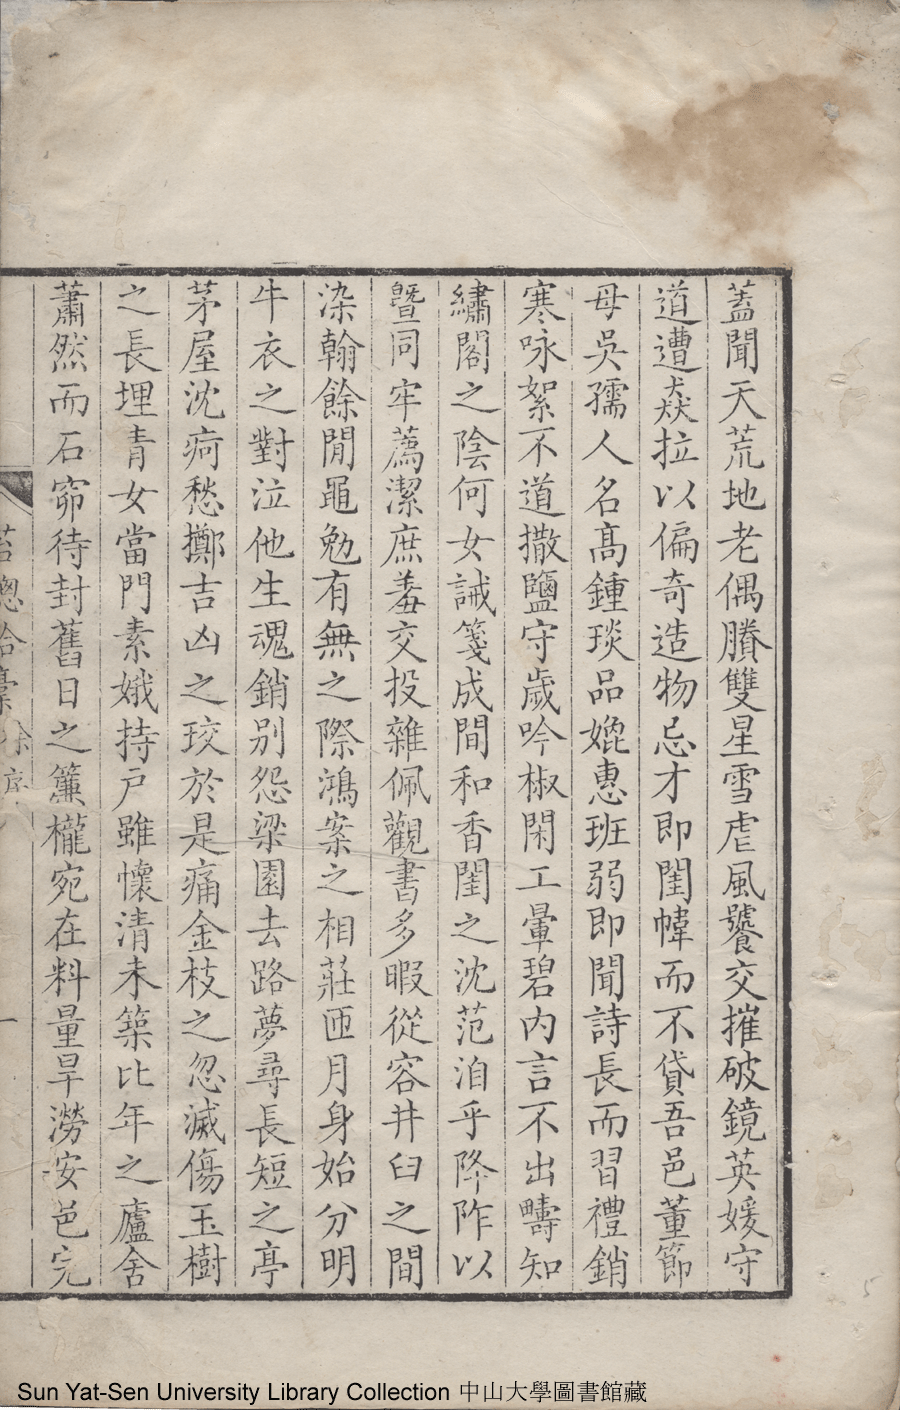 蓋聞天荒地老偶賸雙星雪虐風饕交摧破鏡英媛守
道遭猋拉以偏奇造物忌才即閨幃而不貸吾邑董節
母吳孺人名高鍾琰品媲惠班弱即聞詩長而習禮銷
寒咏絮不道撒鹽守歲吟椒閑工暈碧內言不出疇知
繡閣之陰何女誡箋成間和香閨之沈范洎乎降阼以
曁同牢薦潔庶羞交投雜佩觀書多暇從容井臼之間
染翰餘閒黽勉有無之際鴻案之相莊匝月身始分明
牛衣之對泣他生魂銷別怨梁園去路夢尋長短之亭
茅屋沈疴愁擲吉凶之珓於是痛金枝之忽滅傷玉樹
之長埋青女當門素娥持戶雖懷清未築比年之廬舍
蕭然而石窌待封舊日之簾櫳宛在料量旱澇安邑完
苔窗拾稾 徐序 一
Sun Yat-Sen University Library Collection 中山大學圖書館藏
5